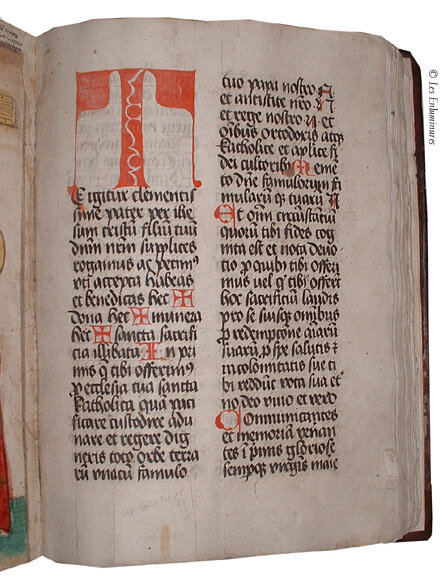 T
E igitur clementis
sime pater per ihe
sum cristū filiū tuū
dn̄m nr̄m supplices
rogamus ac petim9
vti accepta habeas
et benedicas hec ✠
dona hec ✠ munera
hec ✠ sancta sacrifi
cia illibata In pri
mis q̄ tibi offerim9
p ecclesia tua sancta
katholica quā paci
ficare custodire adu
nare et regere dig
neris toto orbe terra
rū vnacū famulo
tuo papa nostro N
et antistite nr̄o N
et rege nostro N et
oībus ortodoxis atqȝ
katholice et aplice fi
dei cultoribȝ Me me
to dn̄e famulorum fa
mularū qȝ tuarū N
Et om̄ circūstātiū
quorū tibi fides cog
nita est et nota deuo
tio p quibȝ tibi offeri
mus vel q̄ tibi offerūt
hoc sacrificiū laudis
pro se suisqȝ omībus
p redemptione aīarū
suarū p spe salutis ⁊
incolomitatis sue ti
bi reddūt vota sua et
no deo viuo et vero
Communicantes
et memoriā veneran
tes ī pīmis gloriose
semperqȝ virgīs maie
© Les Enluminures